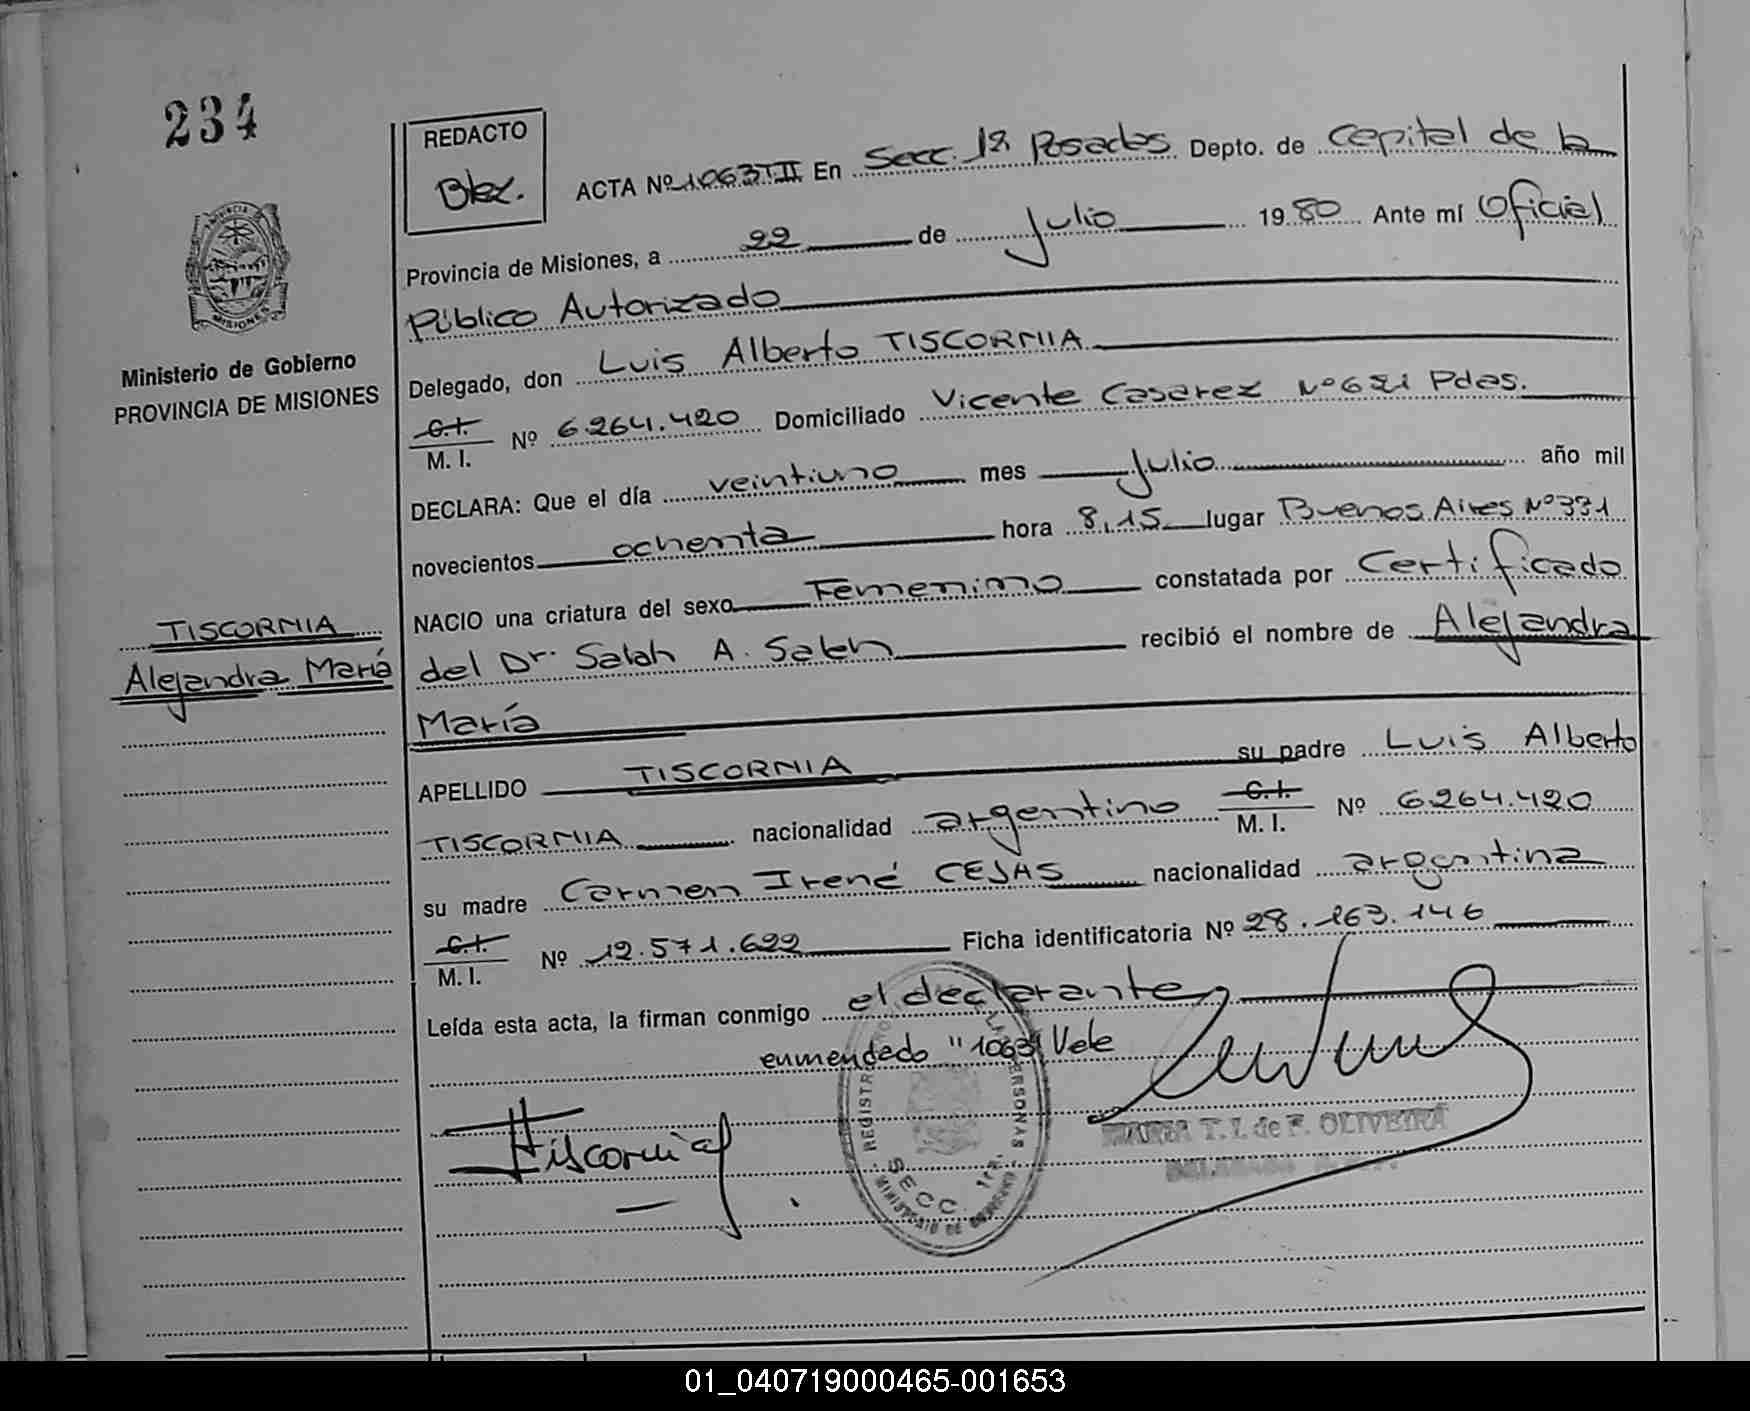 234
REDACTO
Blez.
ACTA Nº 1063TII En Secc. 1ª Posadas Depto. de Capital de la
Provincia de Misiones, a 22 de Julio 1980 Ante mí Oficial
Público Autorizado
MISIONES
Ministerio de Gobierno
PROVINCIA DE MISIONES
Delegado, don Luis Alberto TISCORNIA
C.I.
M. I. Nº 6.264.420 Domiciliado Vicente Casarez Nº 621 Pdas.
DECLARA: Que el día veintiuno mes Julio año mil
novecientos ochenta hora 8,15 lugar Buenos Aires Nº 331
NACIO una criatura del sexo Femenino constatada por Certificado
TISCORNIA
Alejandra María
del Dr. Salah A. Saleh recibió el nombre de Alejandra
María
APELLIDO TISCORNIA su padre Luis Alberto
TISCORNIA nacionalidad argentino C.I. M. I. Nº 6.264.420
su madre Carmen Irené CEJAS nacionalidad argentina
C.I.
M. I. Nº 12.571.622 Ficha identificatoria Nº 28.163.146
Leída esta acta, la firman conmigo el declarante
enmendado "1063" Vale
Tiscornia
REGISTR LA PERSONAS
SECC. 1ra.
MINISTERIO DE GOBIERNO
MARIA T. I. de F. OLIVEIRA
01_040719000465-001653